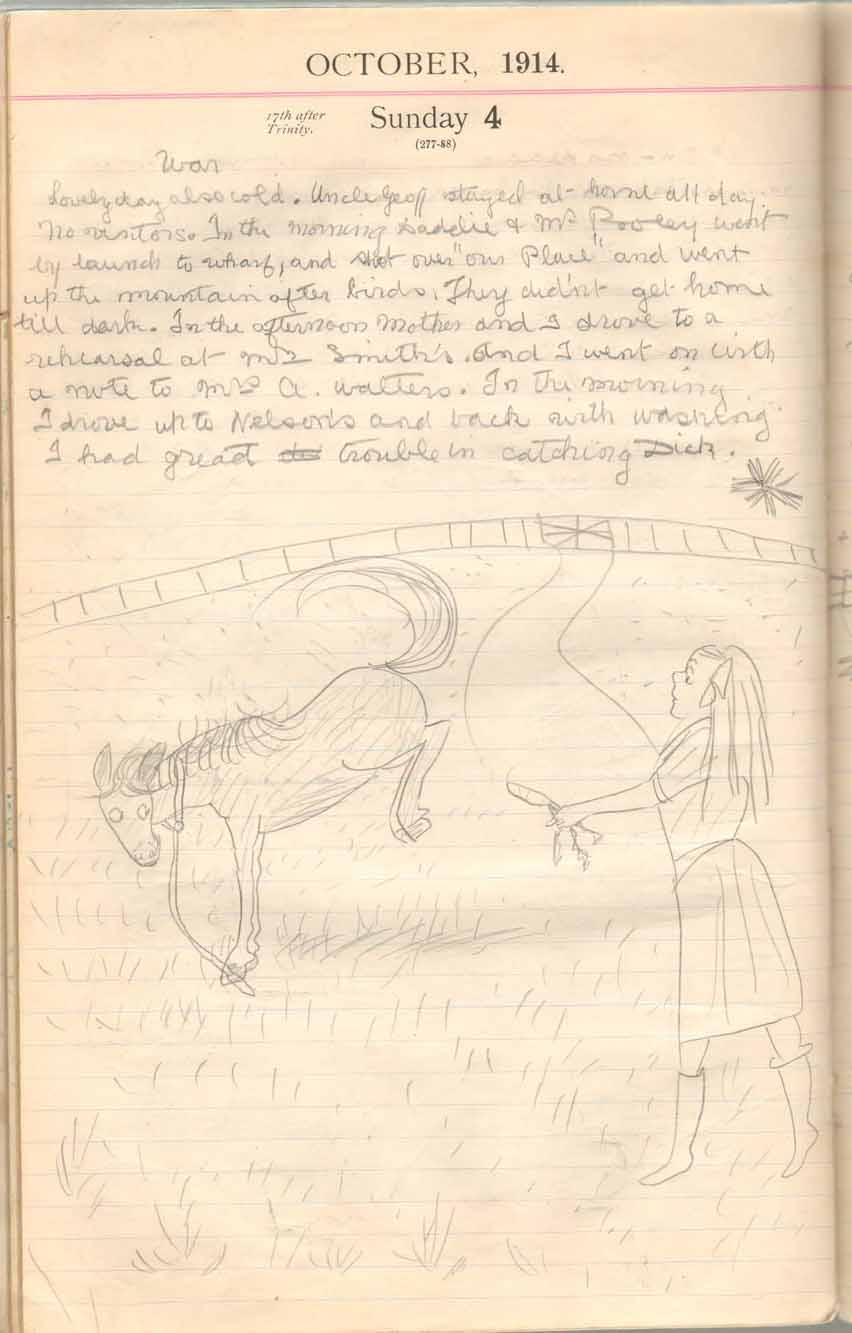 OCTOBER, 1914.
17th after
Trinity.
Sunday 4
(277-88)
War
Lovely day also cold. Uncle Geoff stayed at home all day.
No visitors. In the morning Daddie & Mr Pooley went
by launch to wharf, and shot over "our Place" and went
up the mountain after birds. They didn't get home
till dark. In the afternoon Mother and I drove to a
rehearsal at Smith's. And I went on with
a note to Mrs A. Watters. In the morning
I drove up to Nelson's and back with washing
I had great trouble in catching Dick.